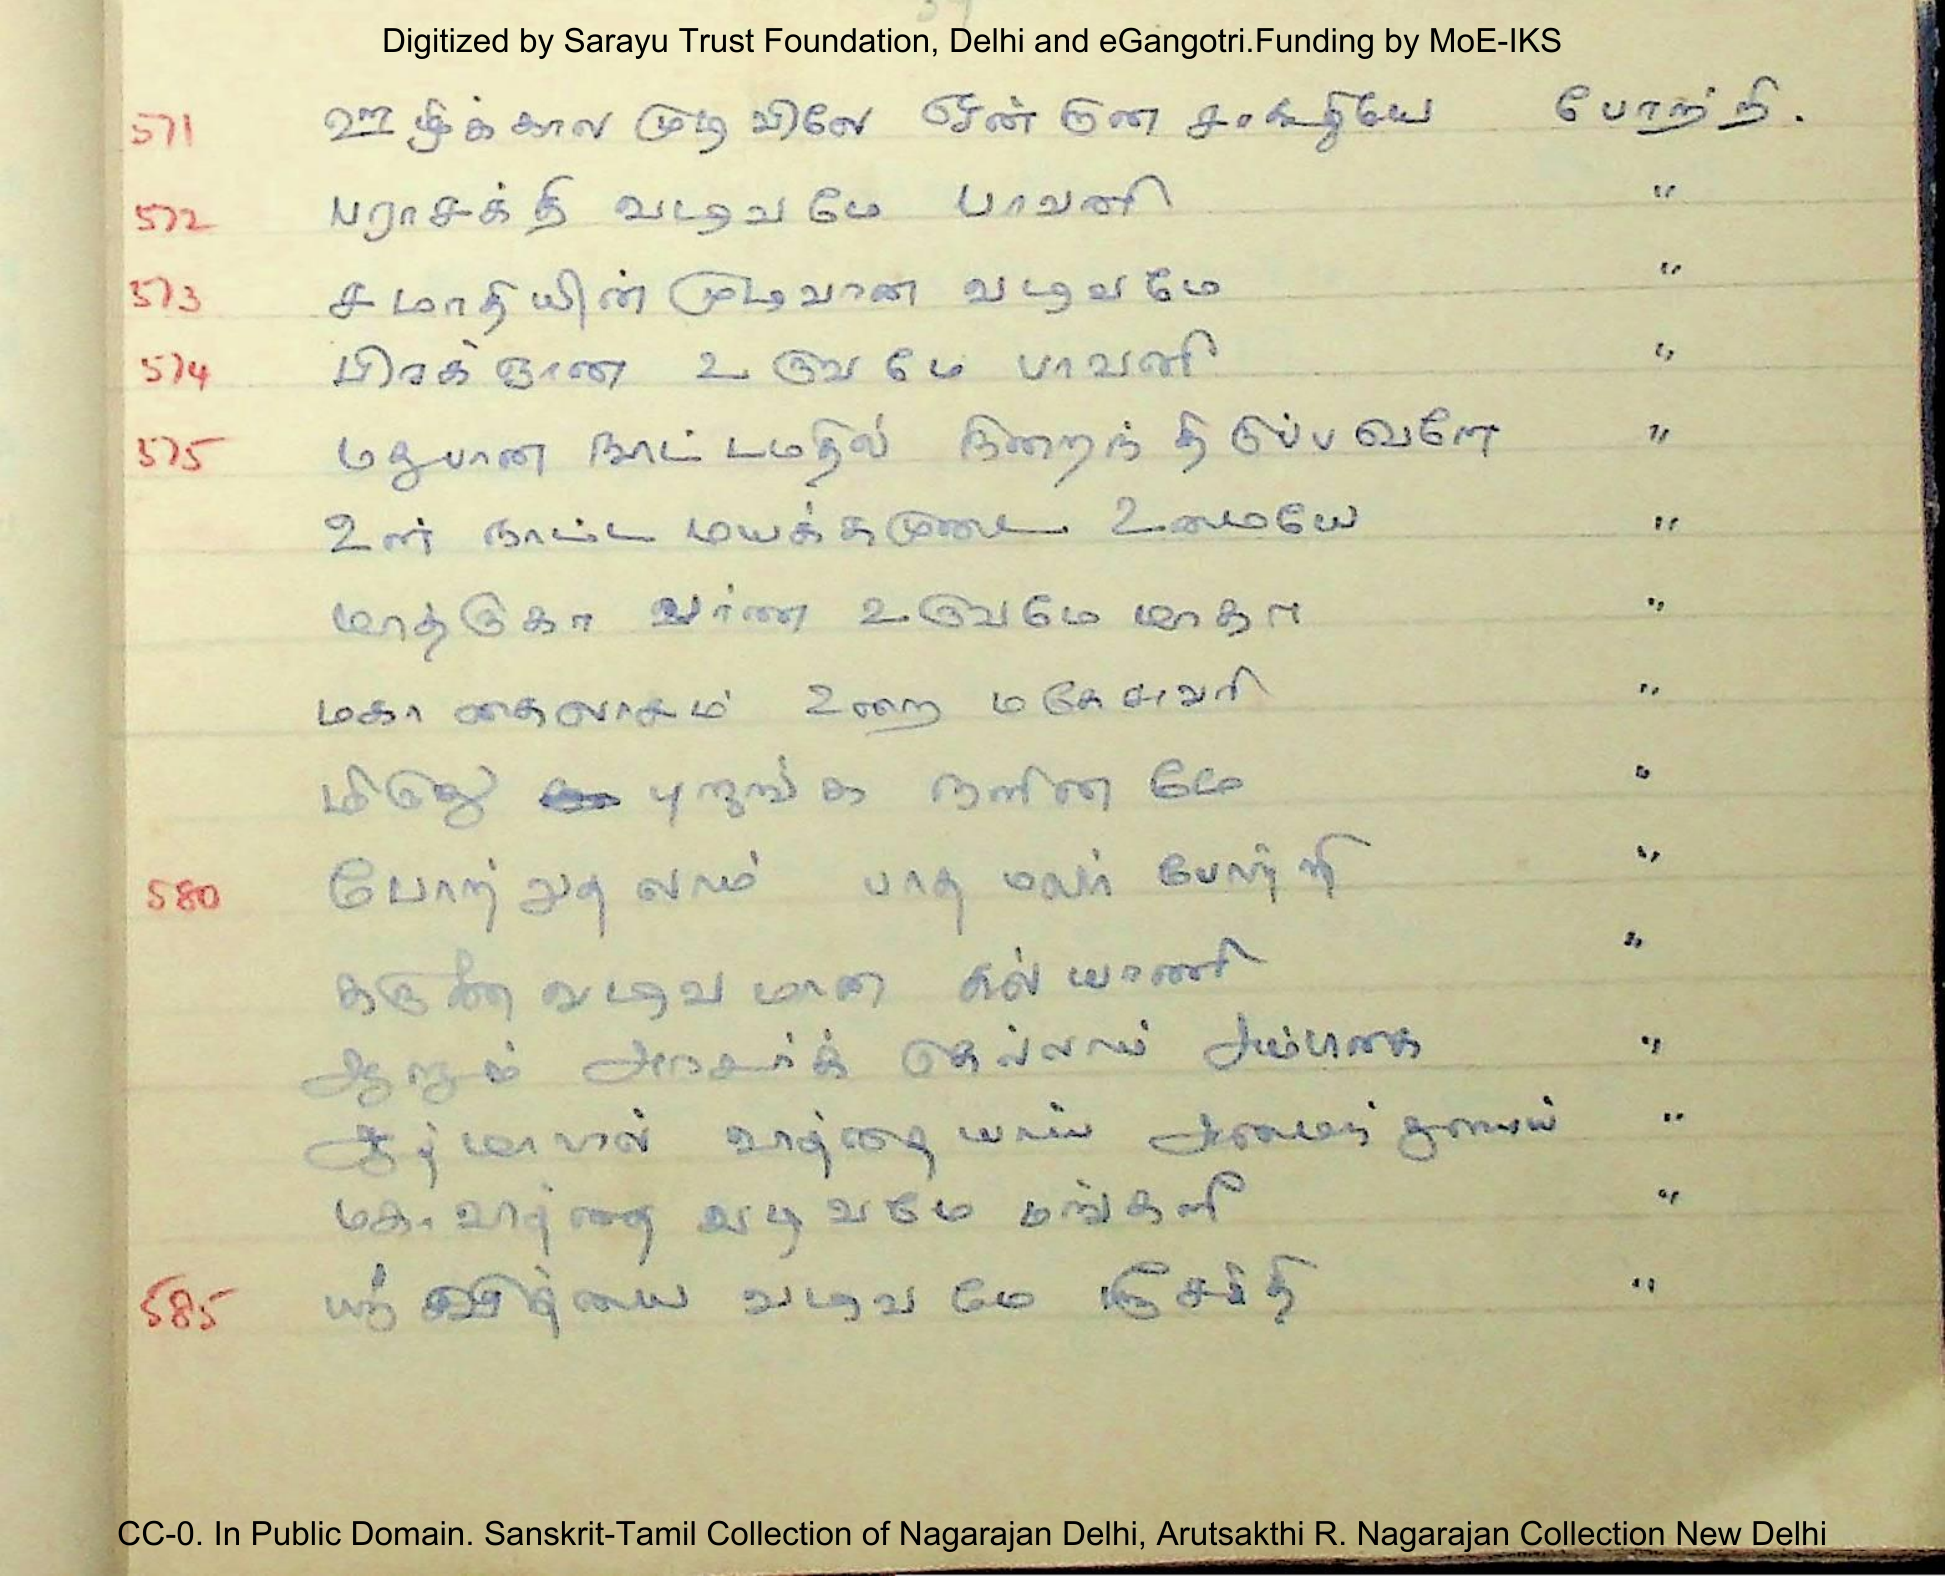 Digitized by Sarayu Trust Foundation, Delhi and eGangotri.Funding by MoE-IKS
571 ஊழிக்கால முடிவிலே போற்றி.
572 பராசக்தி வடிவமே பாவனி "
573 சமாதியின் முடிவான வடிவமே "
574 பிரக்ஞான உருவமே பாவனி "
575 மதுபான நாட்டமதில் நிறைந்திடுப்பவளே "
உன் நாட்ட மயக்கமுடை உமையே "
மாத்ருகா வர்ண உருவமே மாதா "
மகா கைலாசம் உறை மகேசுவரி "
மிருது நளினமே "
580 போற்றுதலாம் பாத மலர் போற்றி "
கருணை வடிவமான கல்யாணி "
அரசர்க் கெல்லாம் "
ஆத்மாவில் வித்தையாய் அமைந்தனாய் "
மகாவித்தை வடிவமே மங்களி "
585 வடிவமே "
CC-0. In Public Domain. Sanskrit-Tamil Collection of Nagarajan Delhi, Arutsakthi R. Nagarajan Collection New Delhi